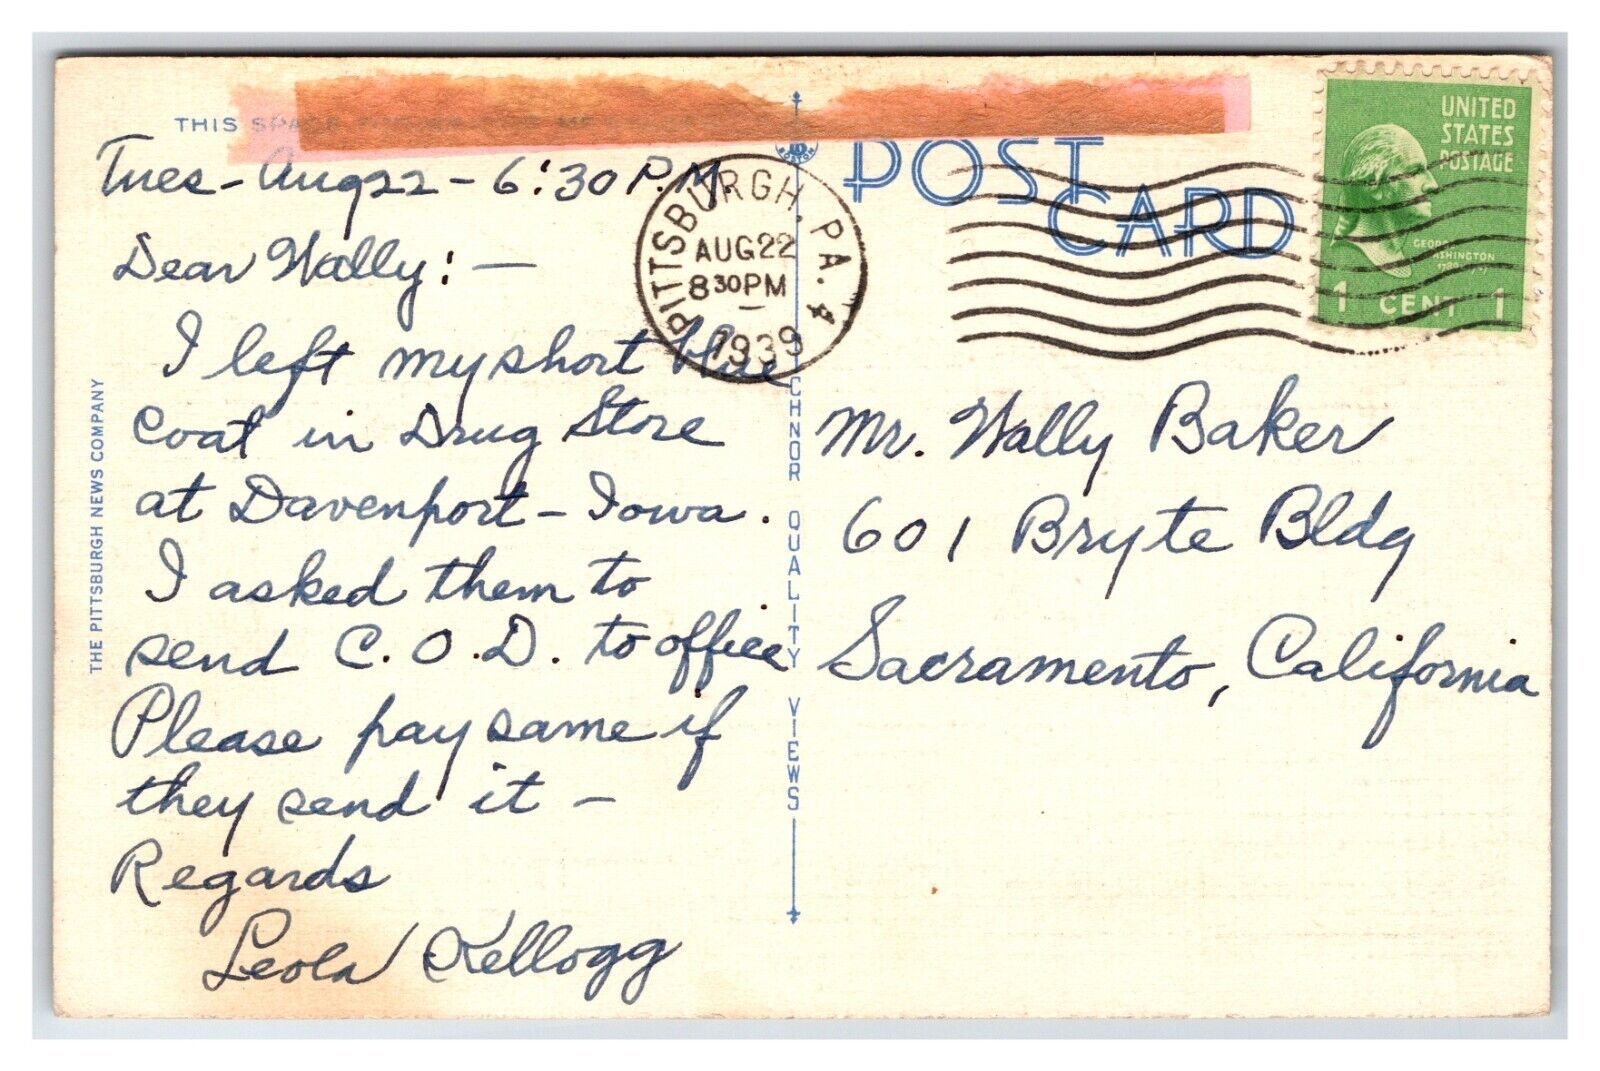 THIS SPACE
Tues - Aug 22 - 6:30 P.M.
Dear Wally: —
I left my short blue
coat in Drug Store
at Davenport - Iowa.
I asked them to
send C.O.D. to office
Please pay same if
they send it —
Regards
Leola Kellogg
THE PITTSBURGH NEWS COMPANY
PITTSBURGH, PA. 4
AUG 22
8 30 PM
1939
CHNOR QUALITY VIEWS
POST
CARD
UNITED
STATES
POSTAGE
GEORGE
WASHINGTON
1 CENT 1
Mr. Wally Baker
601 Bryte Bldg
Sacramento, California